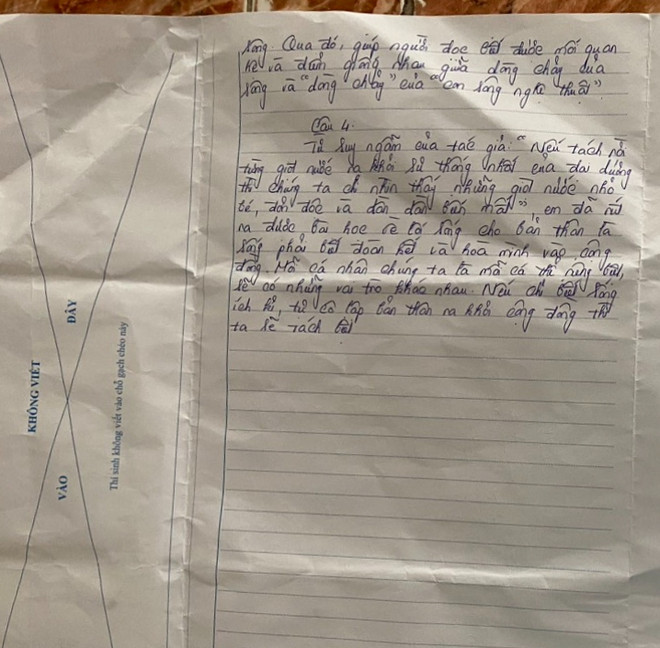 sông. Qua đó, giúp người đọc biết được mối quan
hệ và đan giống nhau giữa dòng chảy của
sông và "dòng chảy" của "con sông nghệ thuật".
Câu 4.
Từ suy ngẫm của tác giả: "Nếu tách
từng giọt nước ra khỏi sự thống nhất của đại dương
thì chúng ta chỉ nhìn thấy những giọt nước nhỏ
bé, đơn độc và dần dần biến mất" em đã rút
ra được bài học về lẽ sống cho bản thân là
sống phải biết đoàn kết và hoà mình vào cộng
đồng. Mỗi cá nhân chúng ta là một cá thể riêng biệt,
sẽ có những vai trò khác nhau. Nếu chỉ biết sống
ích kỉ, tự cô lập bản thân ra khỏi cộng đồng thì
ta sẽ tách biệt
KHÔNG VIẾT
VÀO
ĐÂY
Thí sinh không viết vào chỗ gạch chéo này